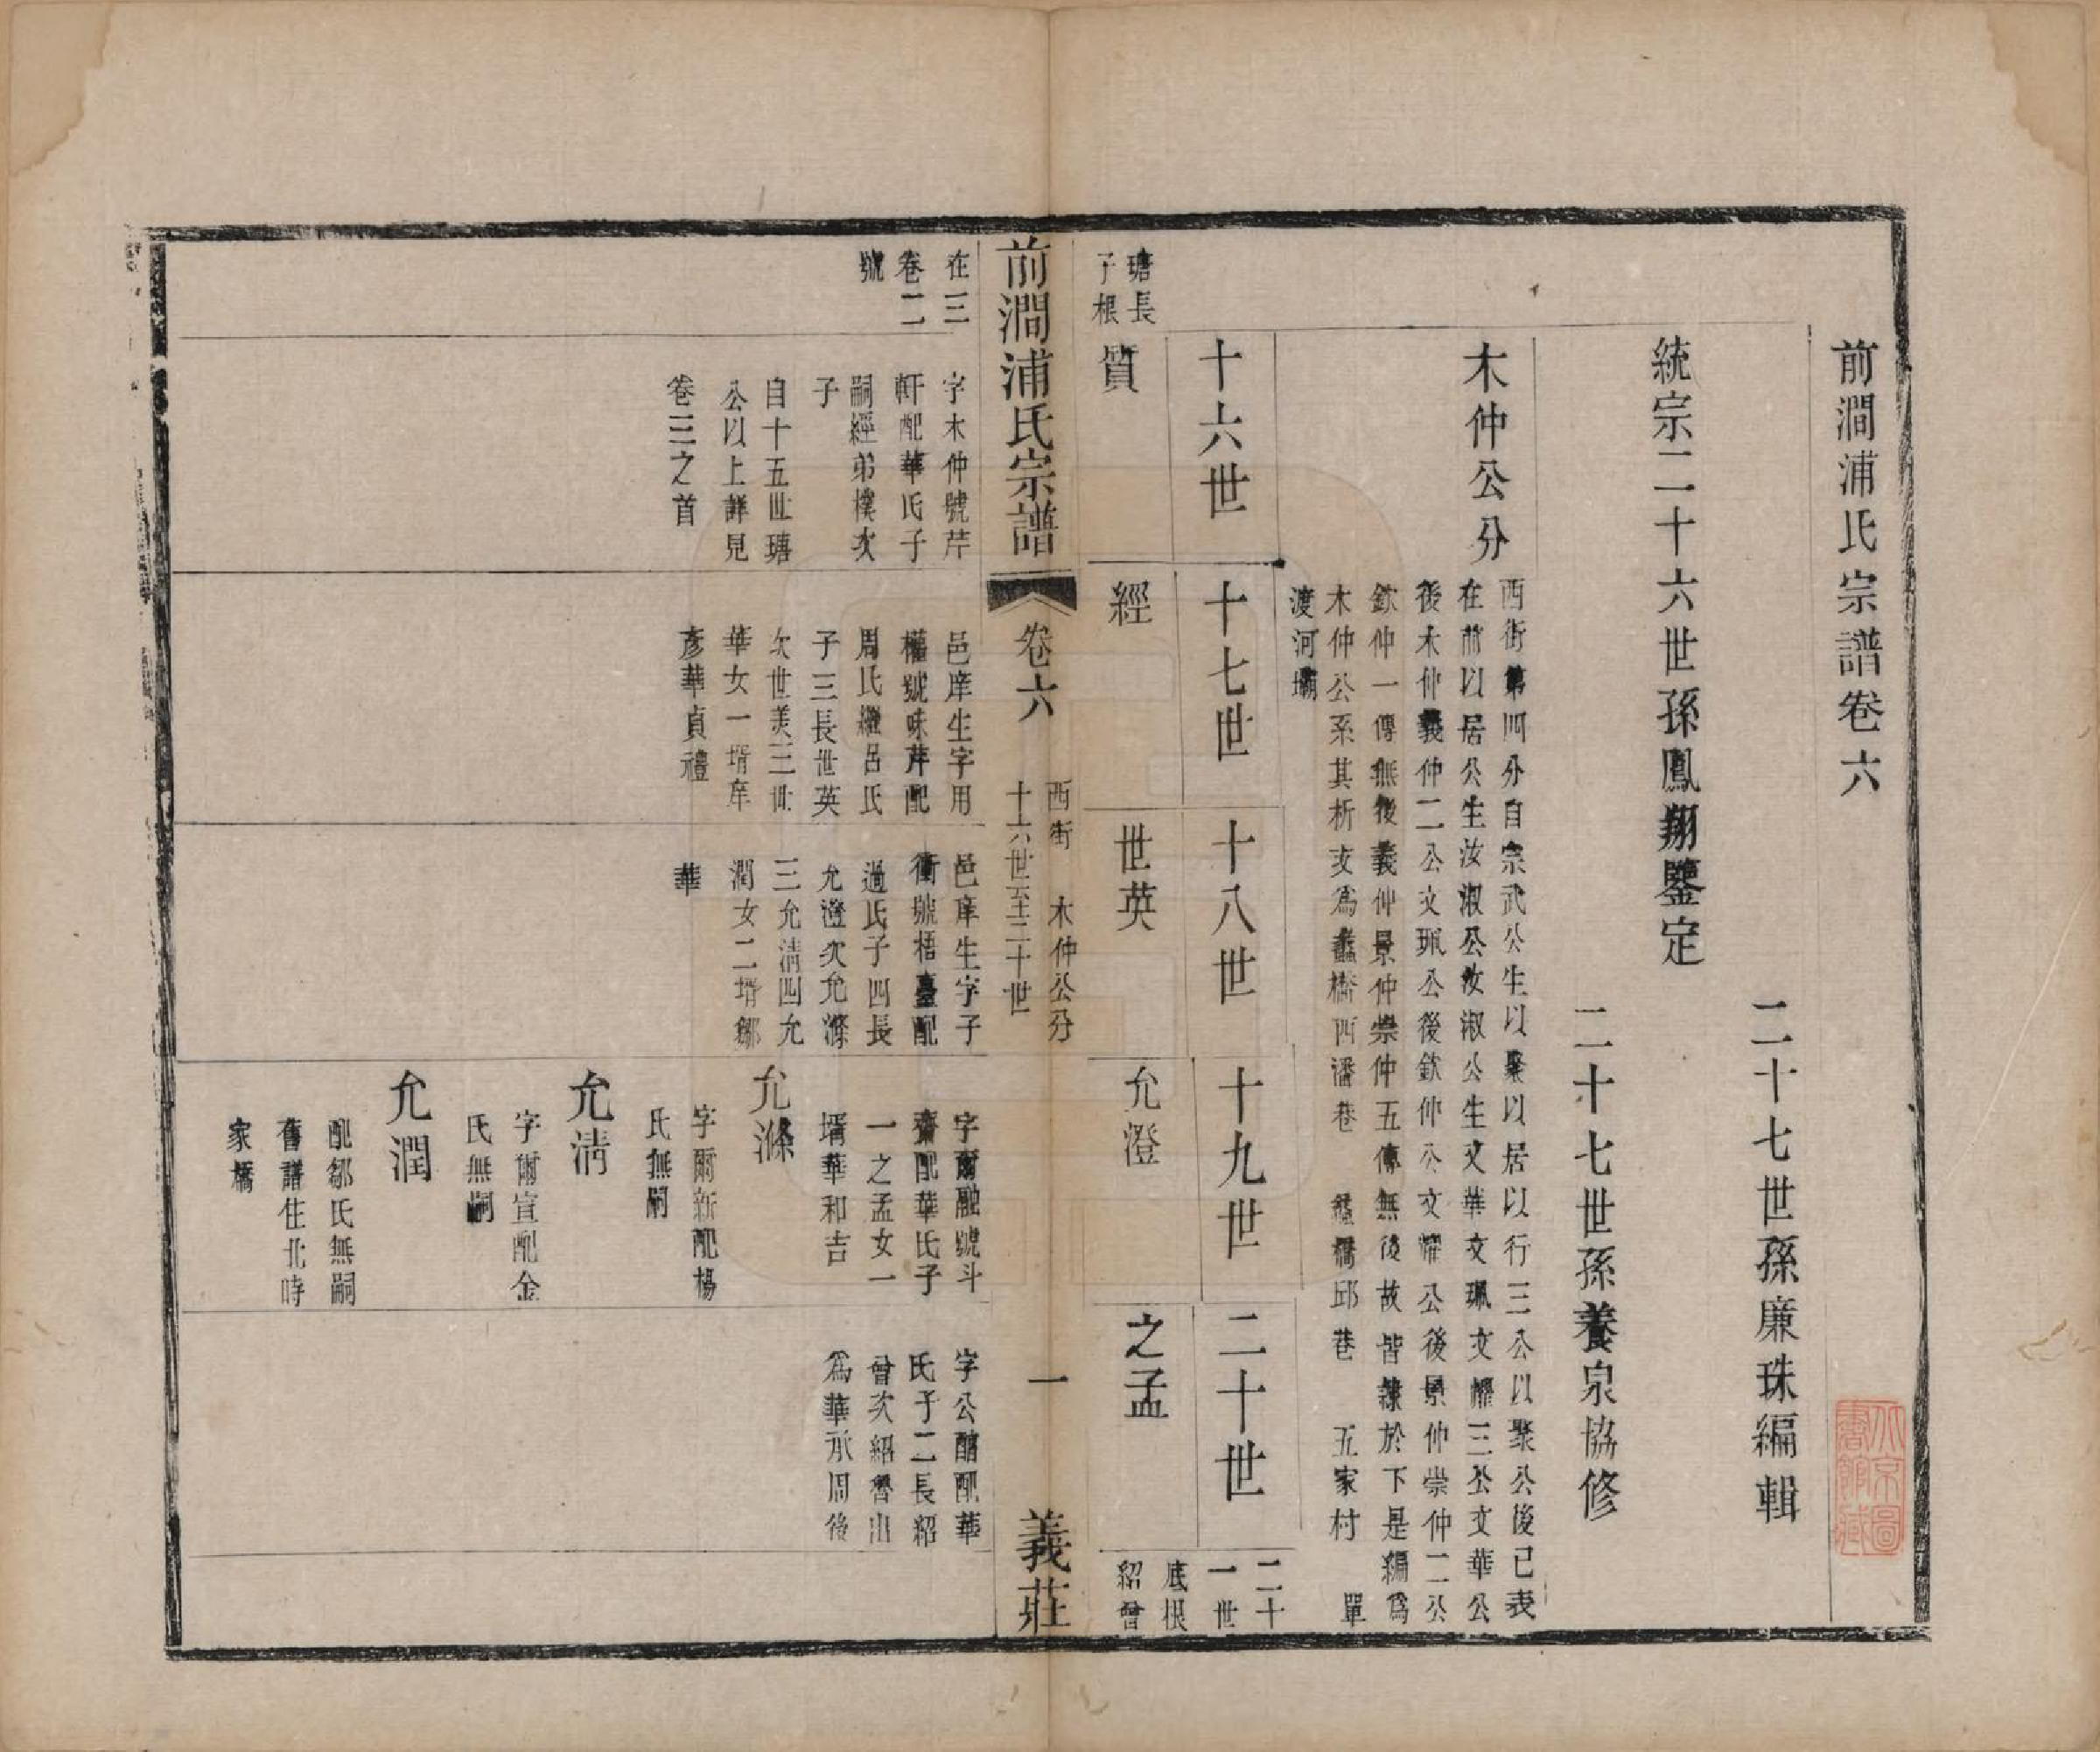 前澗浦氏宗譜卷六
二十七世孫廉珠編輯
統宗二十六世孫鳳翔鑒定
二十七世孫養泉協修
木仲公分
西街第四分自宗武公生以聚以居以行三公以聚公後已表
在前以居公生汝淑公汝淑公生文華文珮文燿三公文華公
後木仲義仲二公文珮公後欽仲公文燿公後景仲崇仲二公
欽仲一傳無後義仲景仲崇仲五傳無後故皆隸於下是編爲
木仲公系其析支爲蠡橋西潘巷 蠡橋邱巷 五家村 單
渡河壩
十六世
十七世
十八世
十九世
二十世
二十
一世
底根
瑭長
子根
質
經
世英
允澄
之孟
紹曾
前澗浦氏宗譜
卷六
西街 木仲公分
十六世至二十世
一
義莊
在三
卷二
號
字木仲號芹
軒配華氏子
嗣經弟樸次
子
自十五世瑭
公以上詳見
卷三之首
邑庠生字用
權號味芹配
周氏繼呂氏
子三長世英
次世美三世
華女一壻庠
彥華貞禮
邑庠生字子
衝號梧臺配
過氏子四長
允澄次允滌
三允清四允
潤女二壻鄒
華
字爾融號斗
齋配華氏子
一之孟女一
壻華和吉
允滌
字爾新配楊
氏無嗣
允清
字爾宣配金
氏無嗣
允潤
配鄒氏無嗣
舊譜住北時
家橋
字公醕配華
氏子二長紹
曾次紹魯出
爲華承周後
北京圖
書館藏